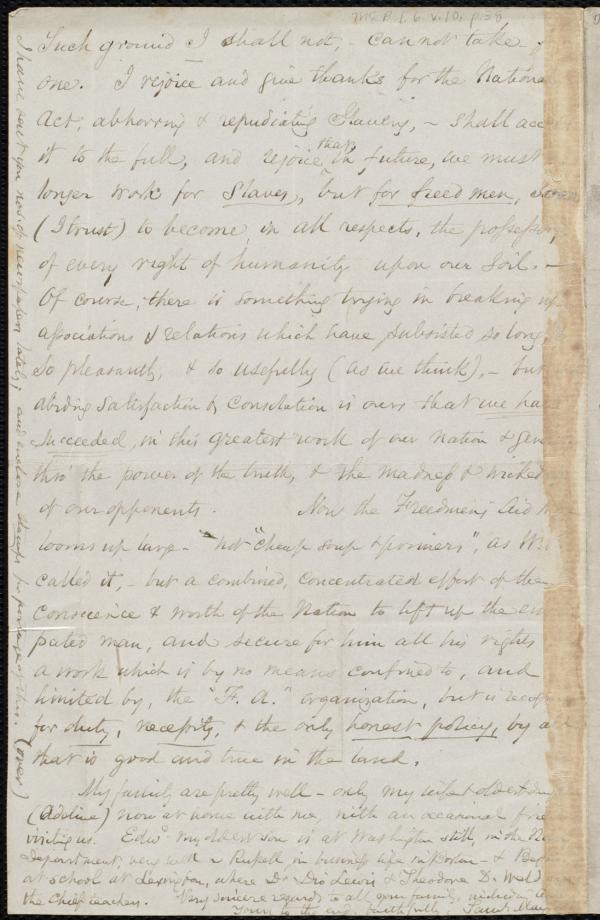 MS.B.1.6 v.10, p.38
Such ground I shall not, - cannot take -,
one. I rejoice and give thanks for the Nationa
Act, abhorring & repudiating Slavery, - shall acc
it to the full, and rejoice that in future, we must
longer work for Slaves, but for freed men,
(I trust) to become in all respects, the possessors,
of every right of humanity upon our Soil. -
Of course, there is something trying in breaking up
associations & relations which have subsisted so long,
so pleasantly, & so usefully (as we think), - but
abiding Satisfaction & Consolation is ours that we have
Succeeded, in this greatest work of our Nation & gen
thro' the power of the truth, & the madness & wicked
of our opponents. Now the Freedmen's Aid
looms up large - not "cheap soup &
called it, - but a combined, concentrated effort of the
Conscience & worth of the Nation to lift up the em
pated man, and secure for him all his rights
a work which is by no means confined to, and
limited by, the "F. A." organization, but is recogn
for duty, necessity, & the only honest policy, by a
that is good and true in the land.
My family are pretty well - only my wife & oldest
(Adeline) now at home with me, with an occasional frie
visiting us. Edwd my oldest son is at Washington still, in the
Department, very well - in business life in Boston - &
at school at Lexington, where Dr Dio Lewis & Theodore D. Weld
the Chief teachers. Very sincere regards to all your family, including
Yours to the end, faithfully, Saml May
I have sent you nos. of newspaper lately; and enclose stamps for postage of this. (over)